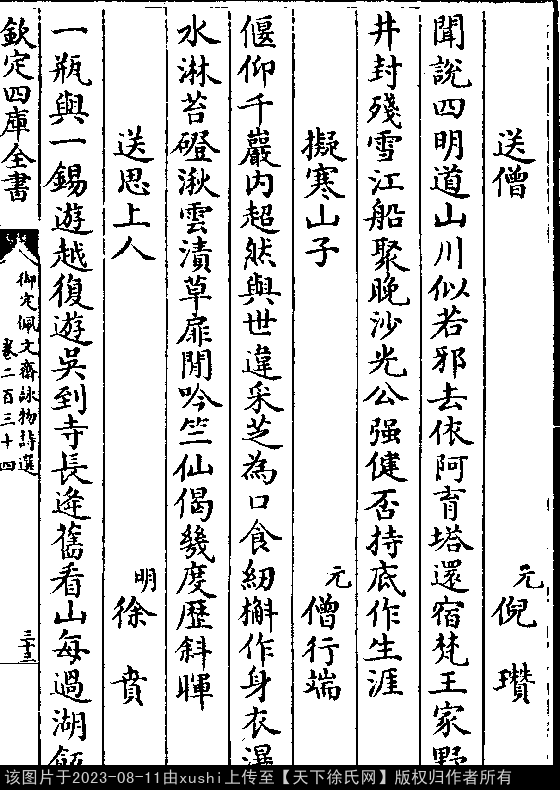 送僧　元　倪　瓚
聞說四明道山川似若邪去依阿育塔還宿梵王家野
井封殘雪江船聚晚沙光公强健否持底作生涯
擬寒山子　元　僧行端
偃仰千巖內超然與世違采芝為口食紉槲作身衣瀑
水淋苔磴湫雲漬草扉閒吟竺仙偈幾度歷斜暉
送思上人　明　徐　賁
一瓶與一錫遊越復遊吳到寺長逄舊看山每過湖飯
欽定四庫全書
御定佩文齋詠物詩選
卷二百三十四
三十三
该图片于2023-08-11由xushi上传至【天下徐氏网】版权归作者所有